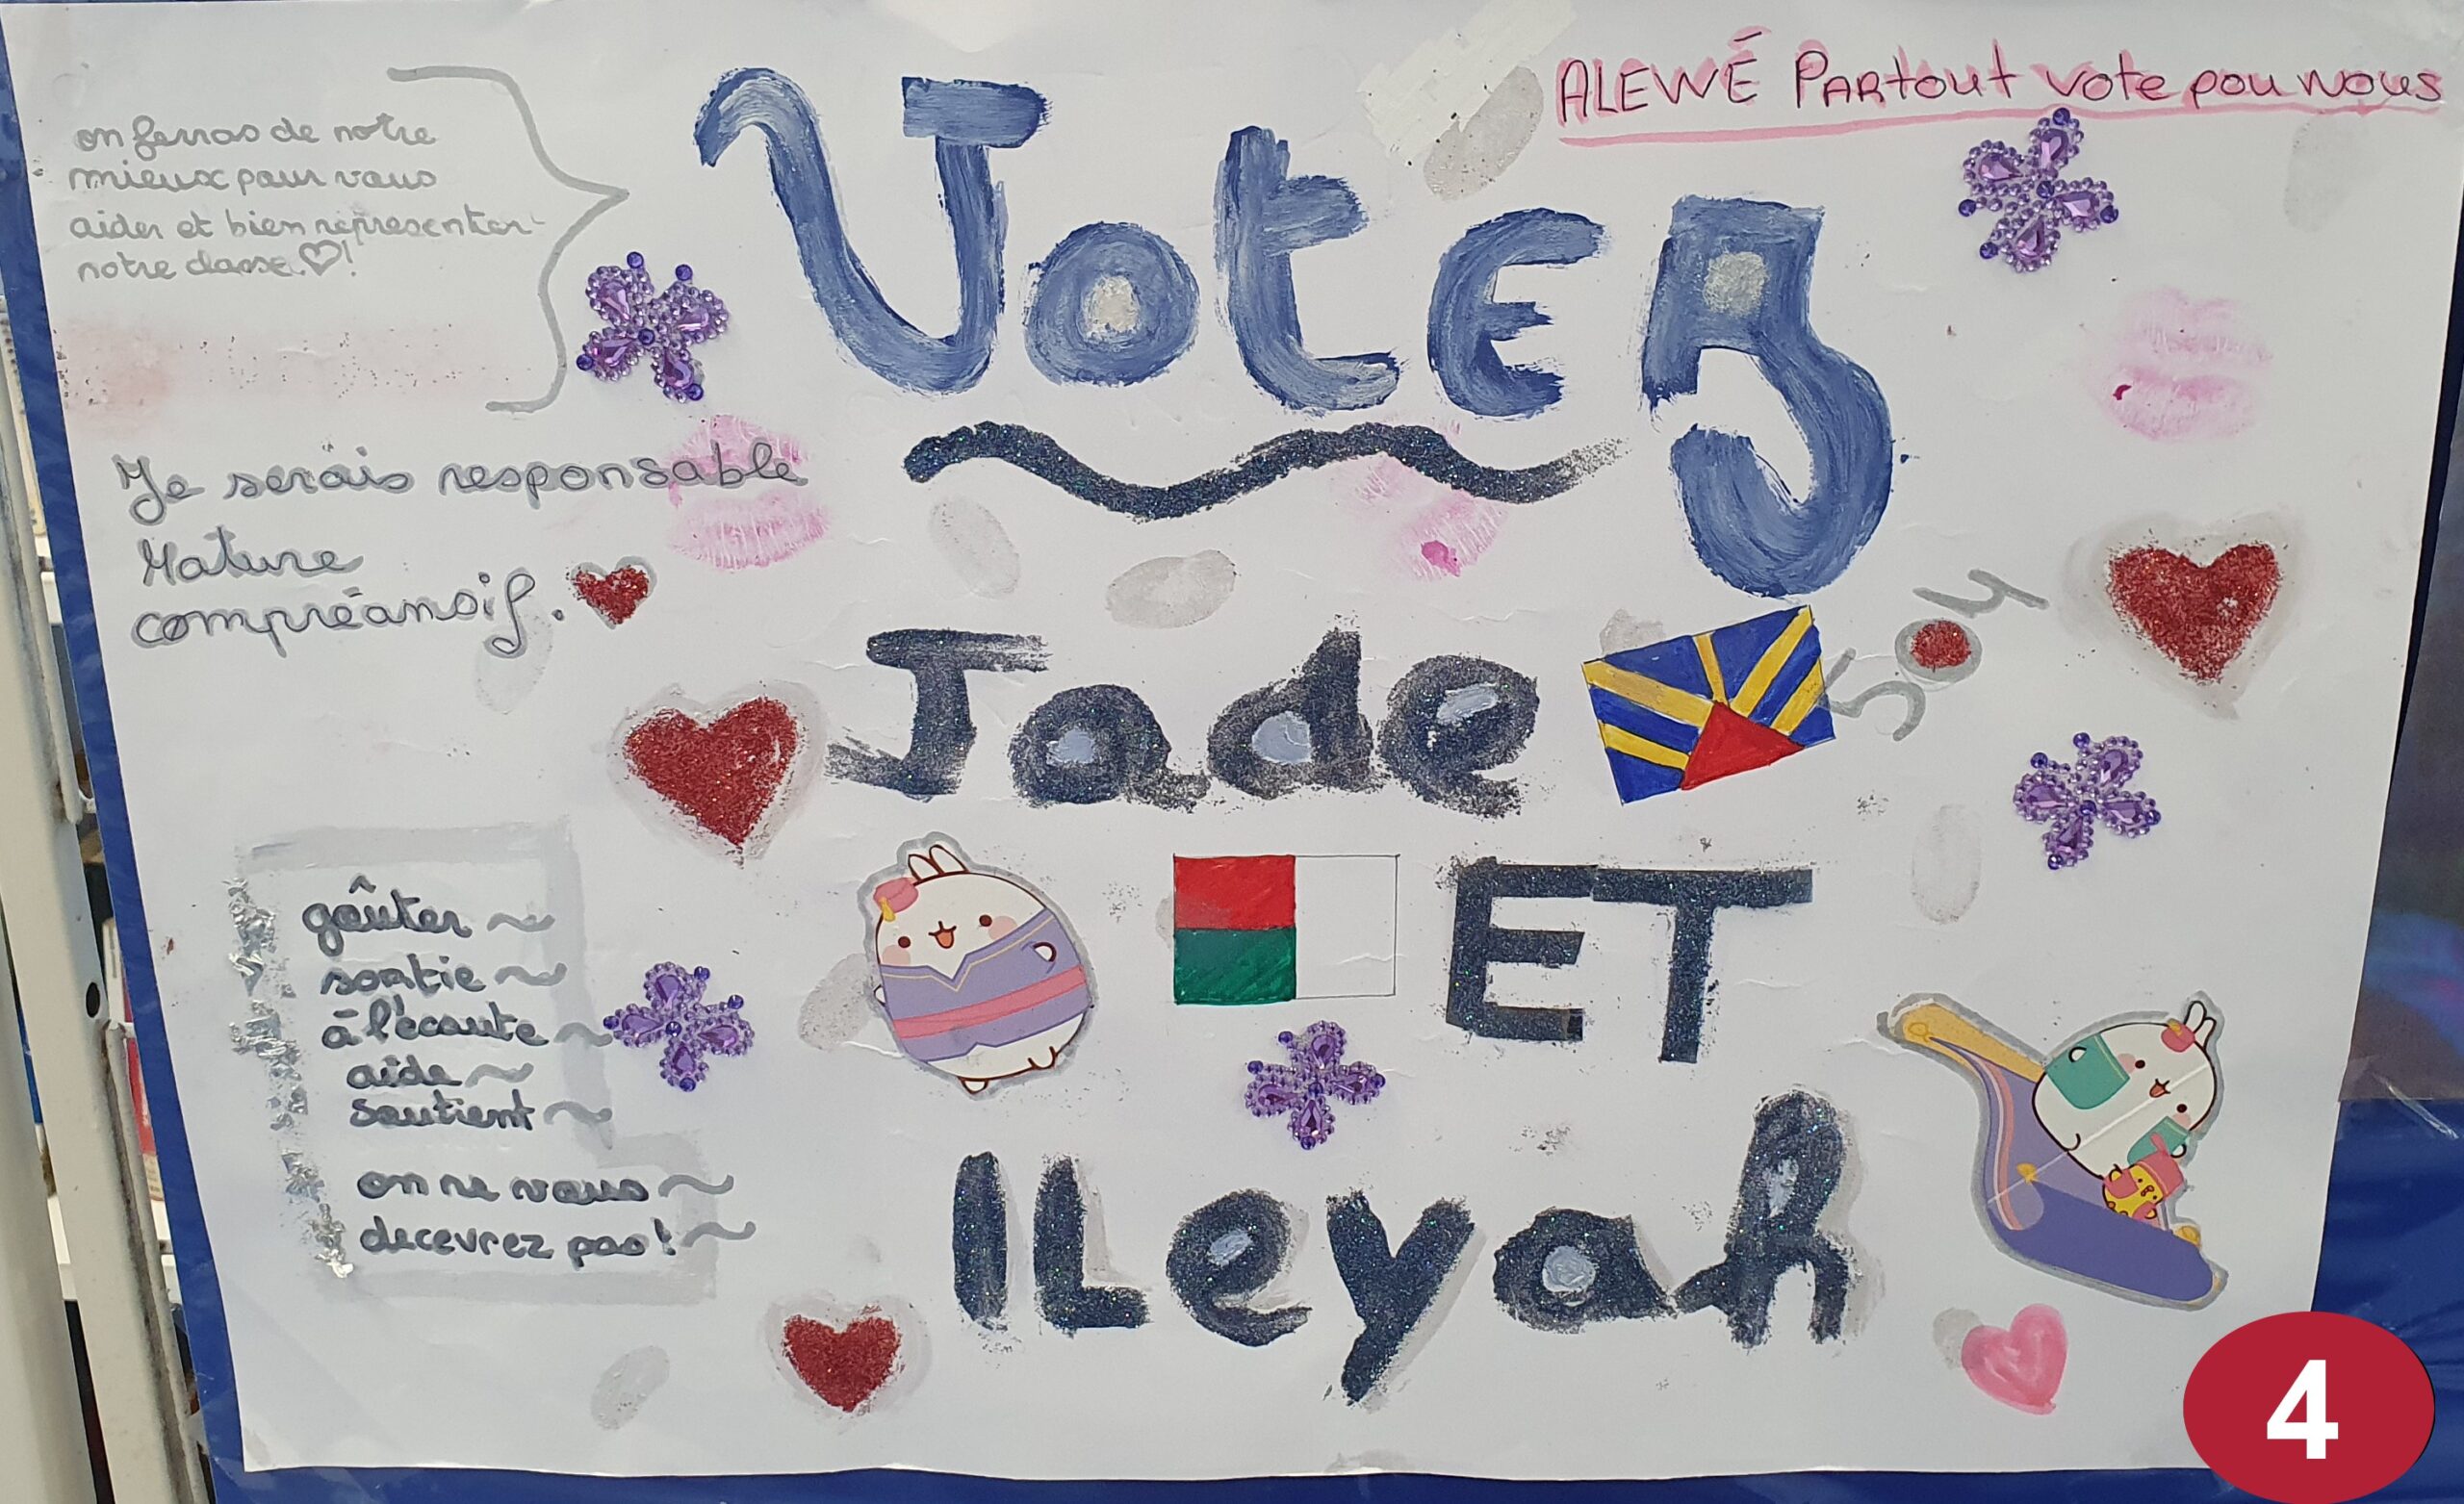 ALEWÉ PARtout vote pou nous
on ferras de notre
mieux pour vous
aider et bien représenter
notre classe ♡!
Votez
Je serais responsable
Mature
compréansif.
504
Jade
ET
ILeyah
goûter ~
sortie ~
à l'écoute ~
aide ~
soutient ~
on ne vous ~
decevrez pas! ~
4